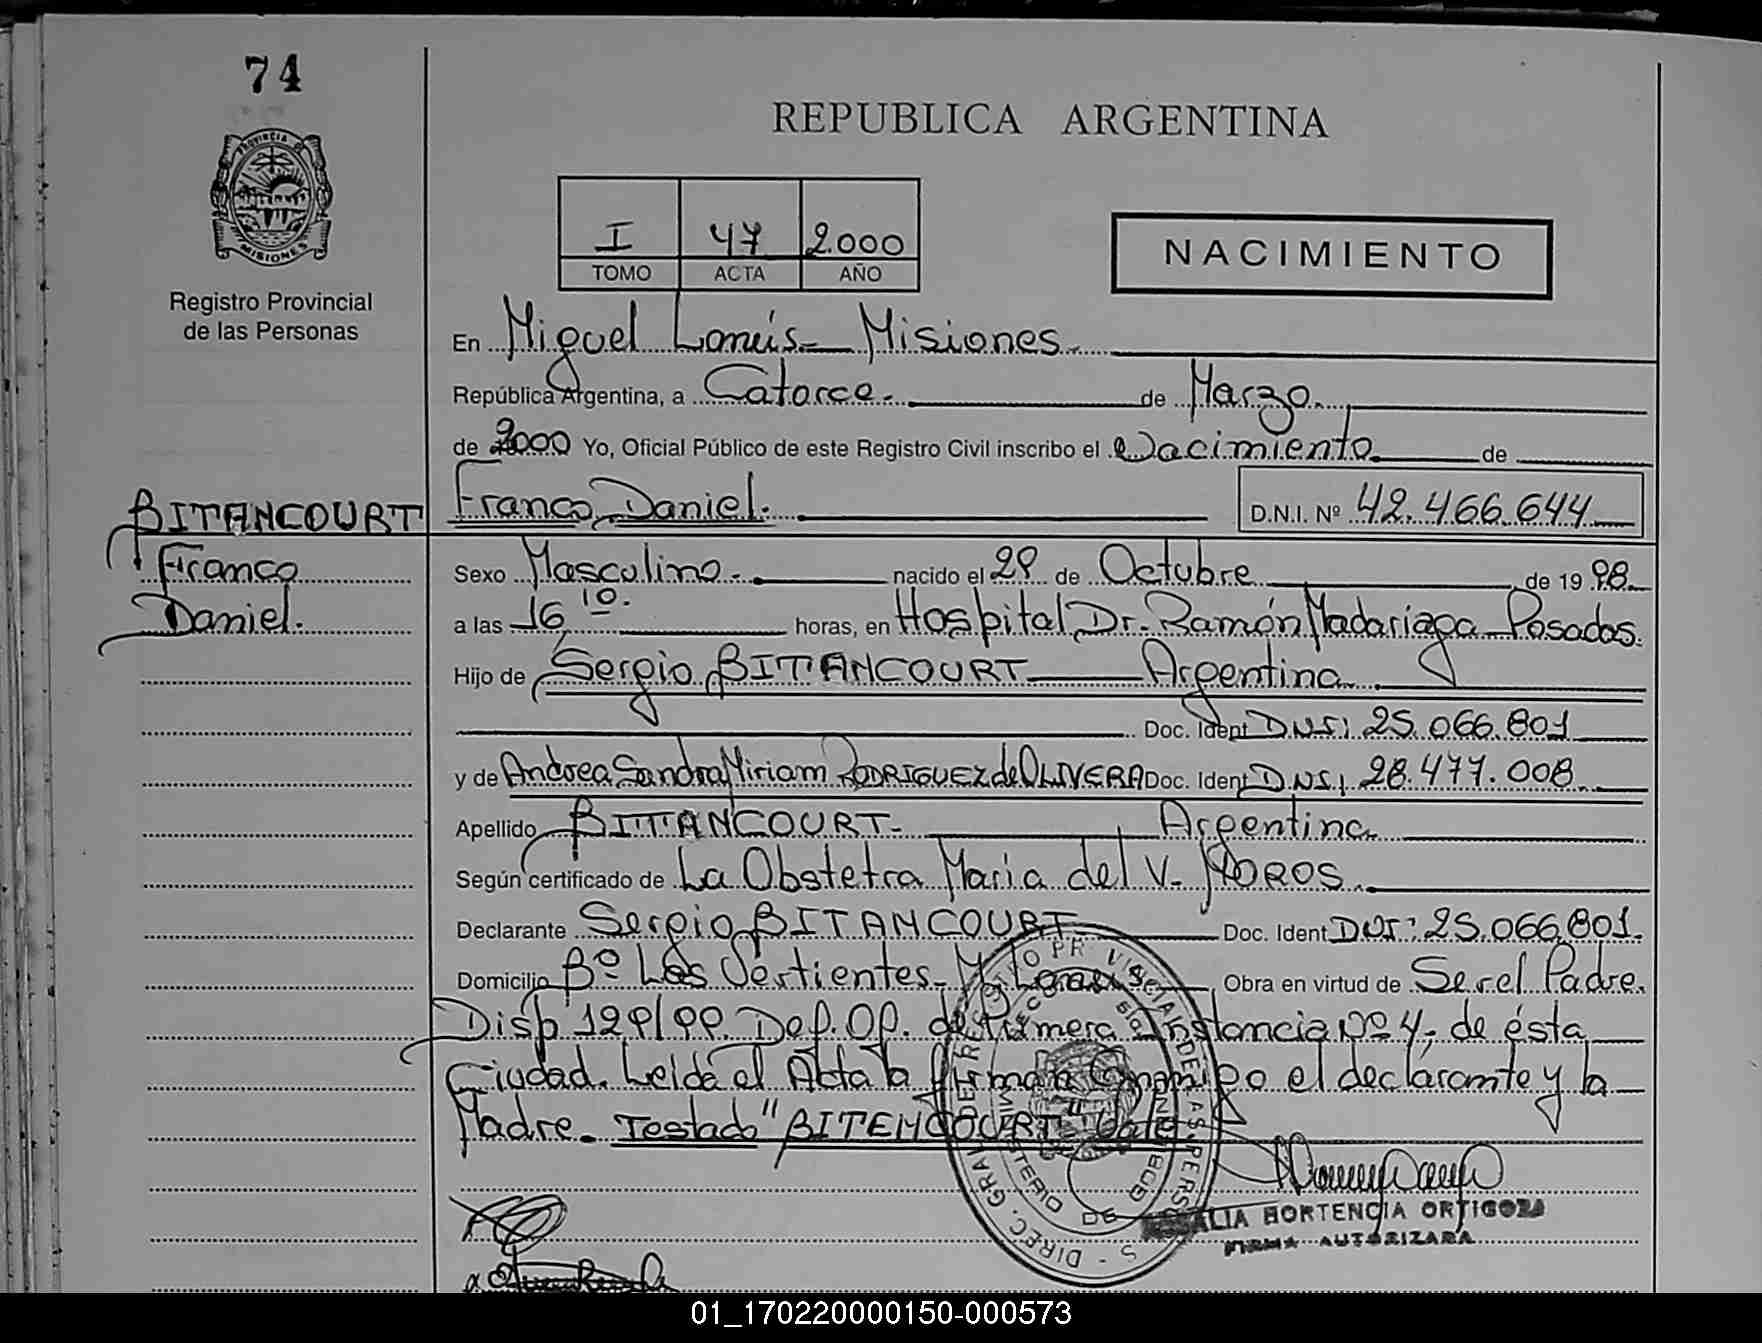 74
REPUBLICA ARGENTINA
PROVINCIA DE
MISIONES
Registro Provincial
de las Personas
I 47 2.000
TOMO ACTA AÑO
NACIMIENTO
En Miguel Lanús - Misiones.
República Argentina, a Catorce. de Marzo.
de 2000 Yo, Oficial Público de este Registro Civil inscribo el Nacimiento de
BITANCOURT Franco Daniel. D.N.I. Nº 42.466.644
Franco Sexo Masculino. nacido el 29 de Octubre de 19 98.
Daniel. a las 16,10. horas, en Hospital Dr. Ramón Madariaga Posadas.
Hijo de Sergio BITANCOURT Argentina
Doc. Ident DNI: 25.066.801
y de Andrea Sandra Miriam RODRIGUEZ de OLIVERA Doc. Ident DNI, 28.477.008
Apellido BITTANCOURT. Argentina
Según certificado de La Obstetra Maria del V. MOROS.
Declarante Sergio BITANCOURT Doc. Ident DNI: 25.066.801.
Domicilio Bº Las Vertientes - M. Lanus Obra en virtud de Ser el Padre.
Disp 129/99. Def. Of. de Primera Instancia Nº 4, de ésta
Ciudad. Leída el Acta la firman conmigo el declarante y la
Madre. Testado "BITENCOURT" Vale
HORTENCIA ORTIGOZA
FIRMA AUTORIZADA
01_170220000150-000573